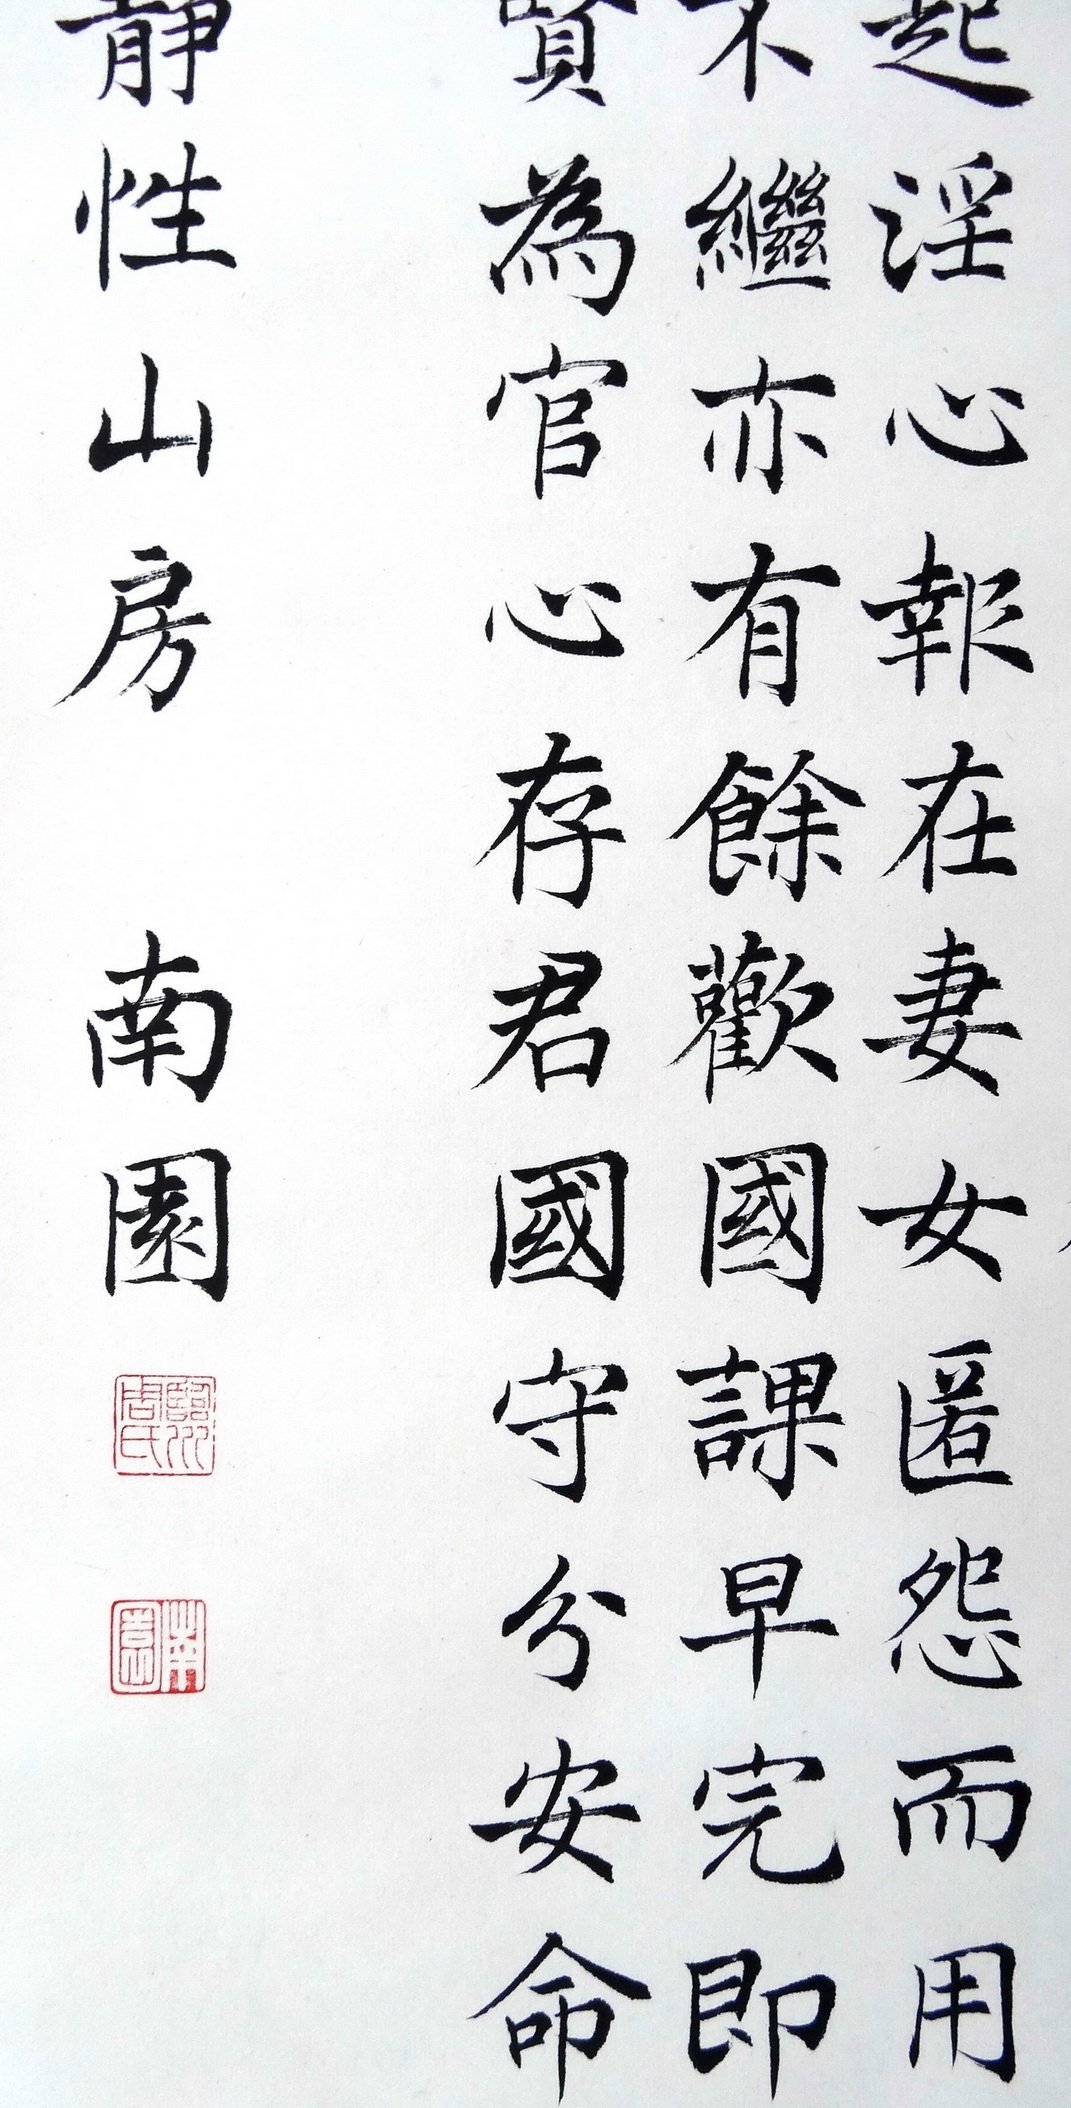 起淫心報在妻女匿怨而用
不繼亦有餘歡國課早完即
賢為官心存君國守分安命
靜性山房 南園
南園